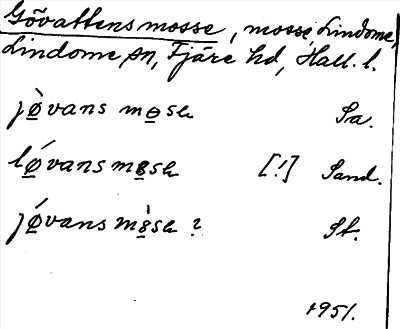 Gövattens mosse, mosse, Lindome,
Lindome sn, Fjäre hd, Hall. l.
jø̀vans mosa Sa.
lǿvans mosa [!] Sand.
jǿvans mòsa ? St.
1951.